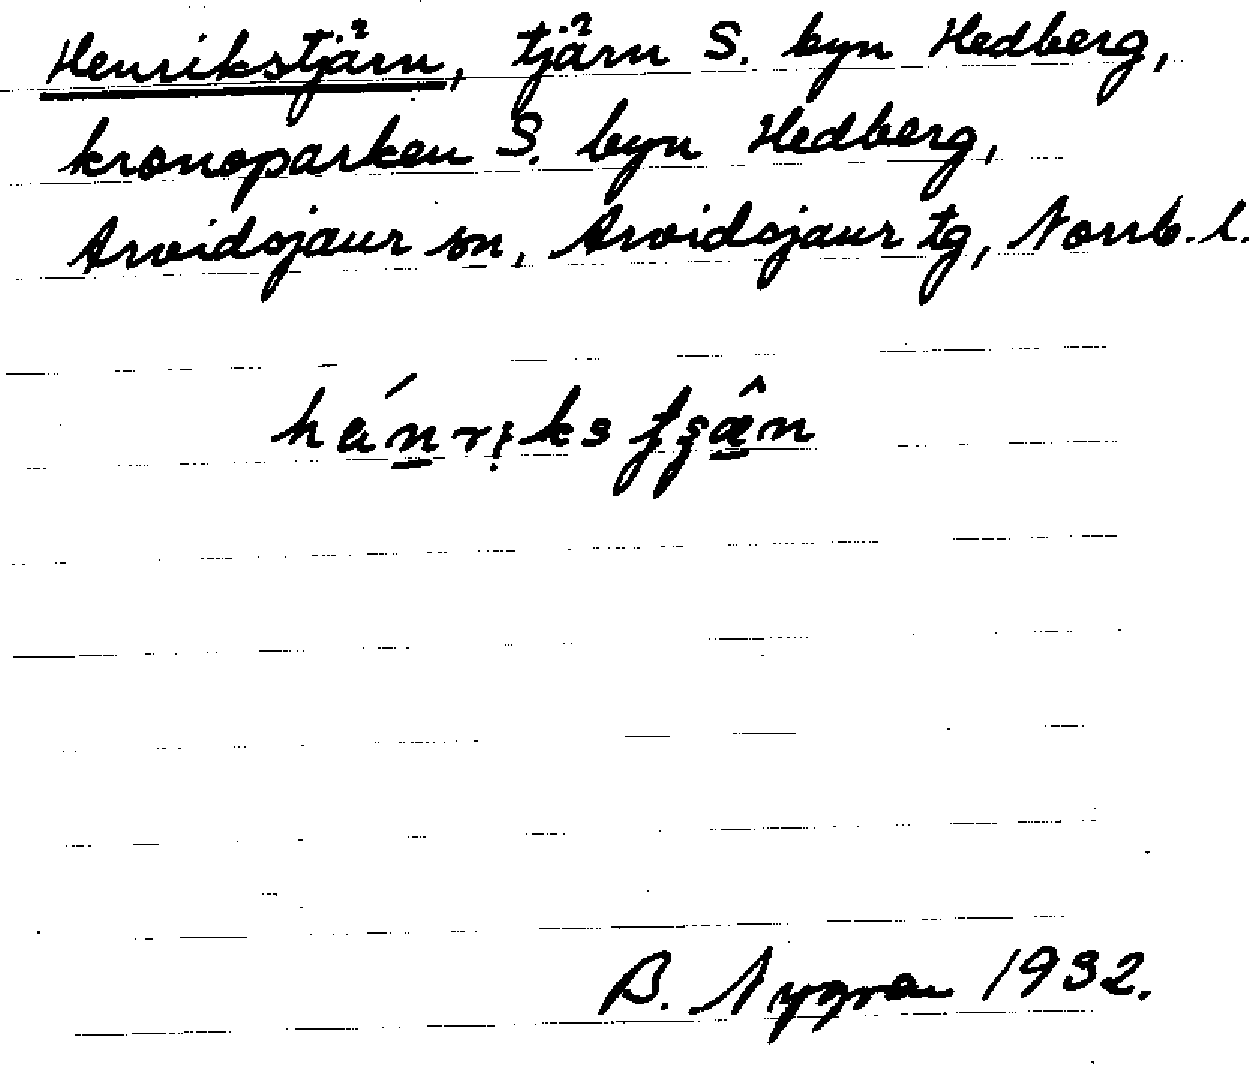 Henrikstjärn, tjärn S. byn Hedberg,
kronoparken S. byn Hedberg,
Arvidsjaur sn, Arvidsjaur tg, Norrb. l.
B. Nygren 1932.